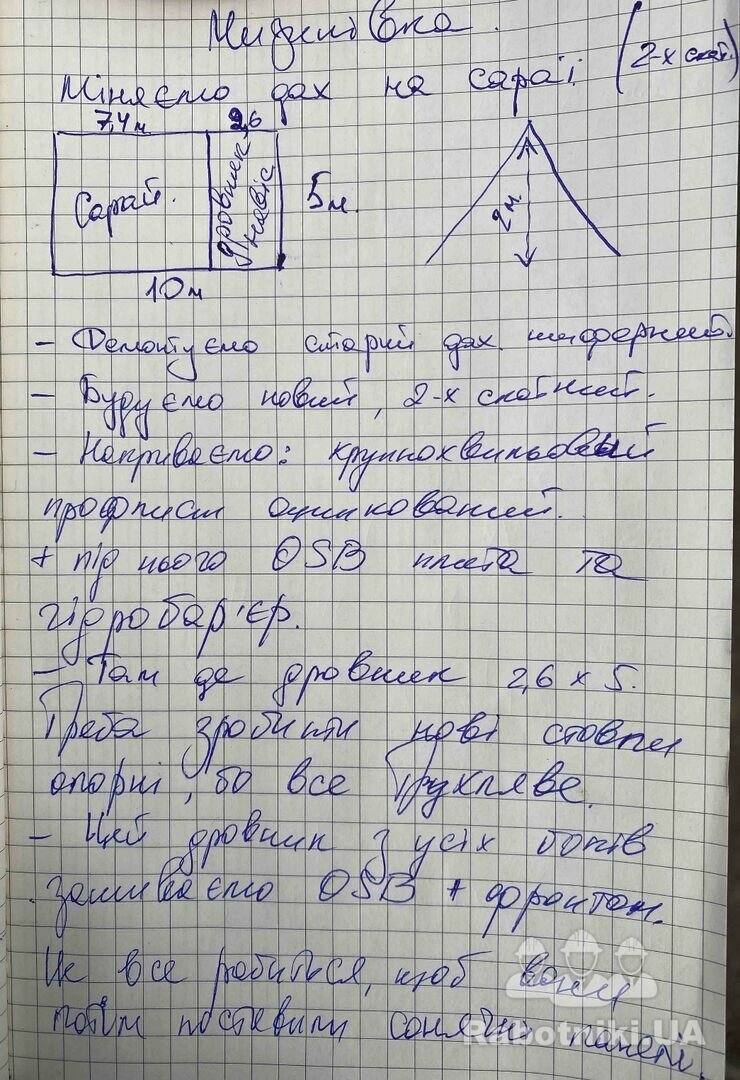 Міняємо дах на сараї (2-х скат.)
7,4м 2,6
Сарай.
дровник навіс
5м.
2м.
10м
- Демонтуємо старий дах шиферний.
- Будуємо новий, 2-х скатний.
- Накриваємо: крупнохвильовий
профлист оцинкований.
+ під нього OSB плита та
гідробар'єр.
- Там де дровник 2,6 х 5.
Треба зробити нові стовпи
опорні, бо все трухляве.
- Цей дровник з усіх боків
зашиваємо OSB + фронтон.
Це все робиться, щоб вони
потім поставили сонячні панелі.
Rabotniki.UA